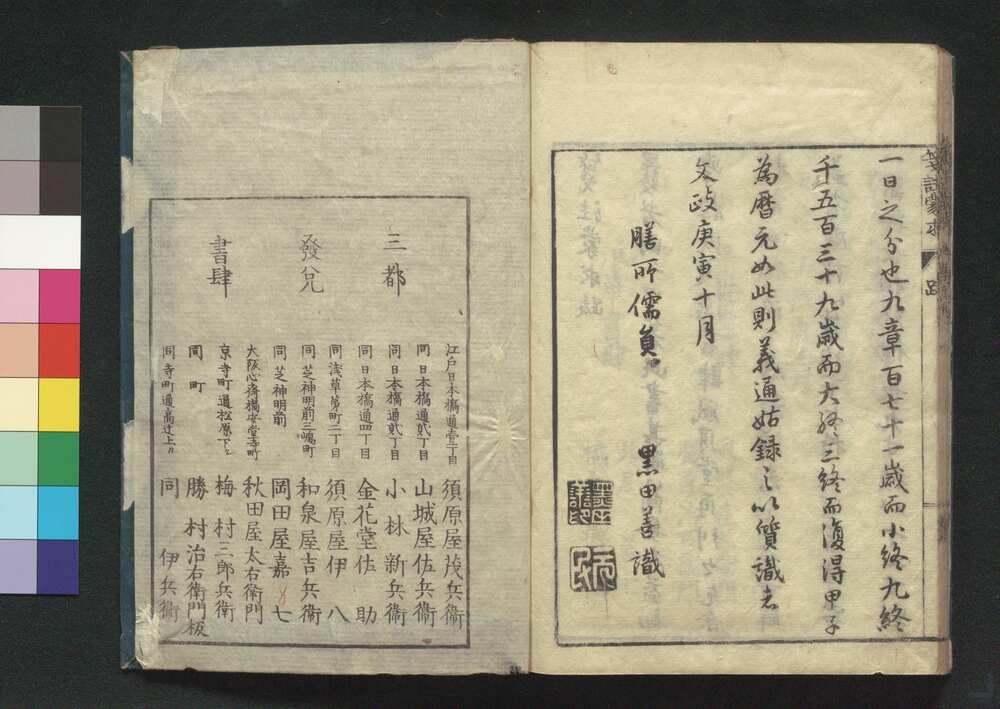 一日之分也九章百七十一歳而小終九終
千五百三十九歳而大終三終而復得甲子
為暦元如此則義通姑録之以質識者
文政庚寅十月
膳所儒員 黒田善識
三都
發兌
書肆
江戸日本橋通壱丁目 須原屋茂兵衞
同日本橋通貮丁目 山城屋佐兵衞
同日本橋通貮丁目 小林新兵衞
同日本橋通四丁目 金花堂佐助
同浅草茅町二丁目 須原屋伊八
同芝神明前三嶋町 和泉屋吉兵衞
同芝神明前 岡田屋嘉七
大阪心斎橋安堂寺町 秋田屋太右衛門
京寺町通松原下ル 梅村三郎兵衛
同町 勝村治右衛門板
同寺町通高辻上ル 同伊兵衞